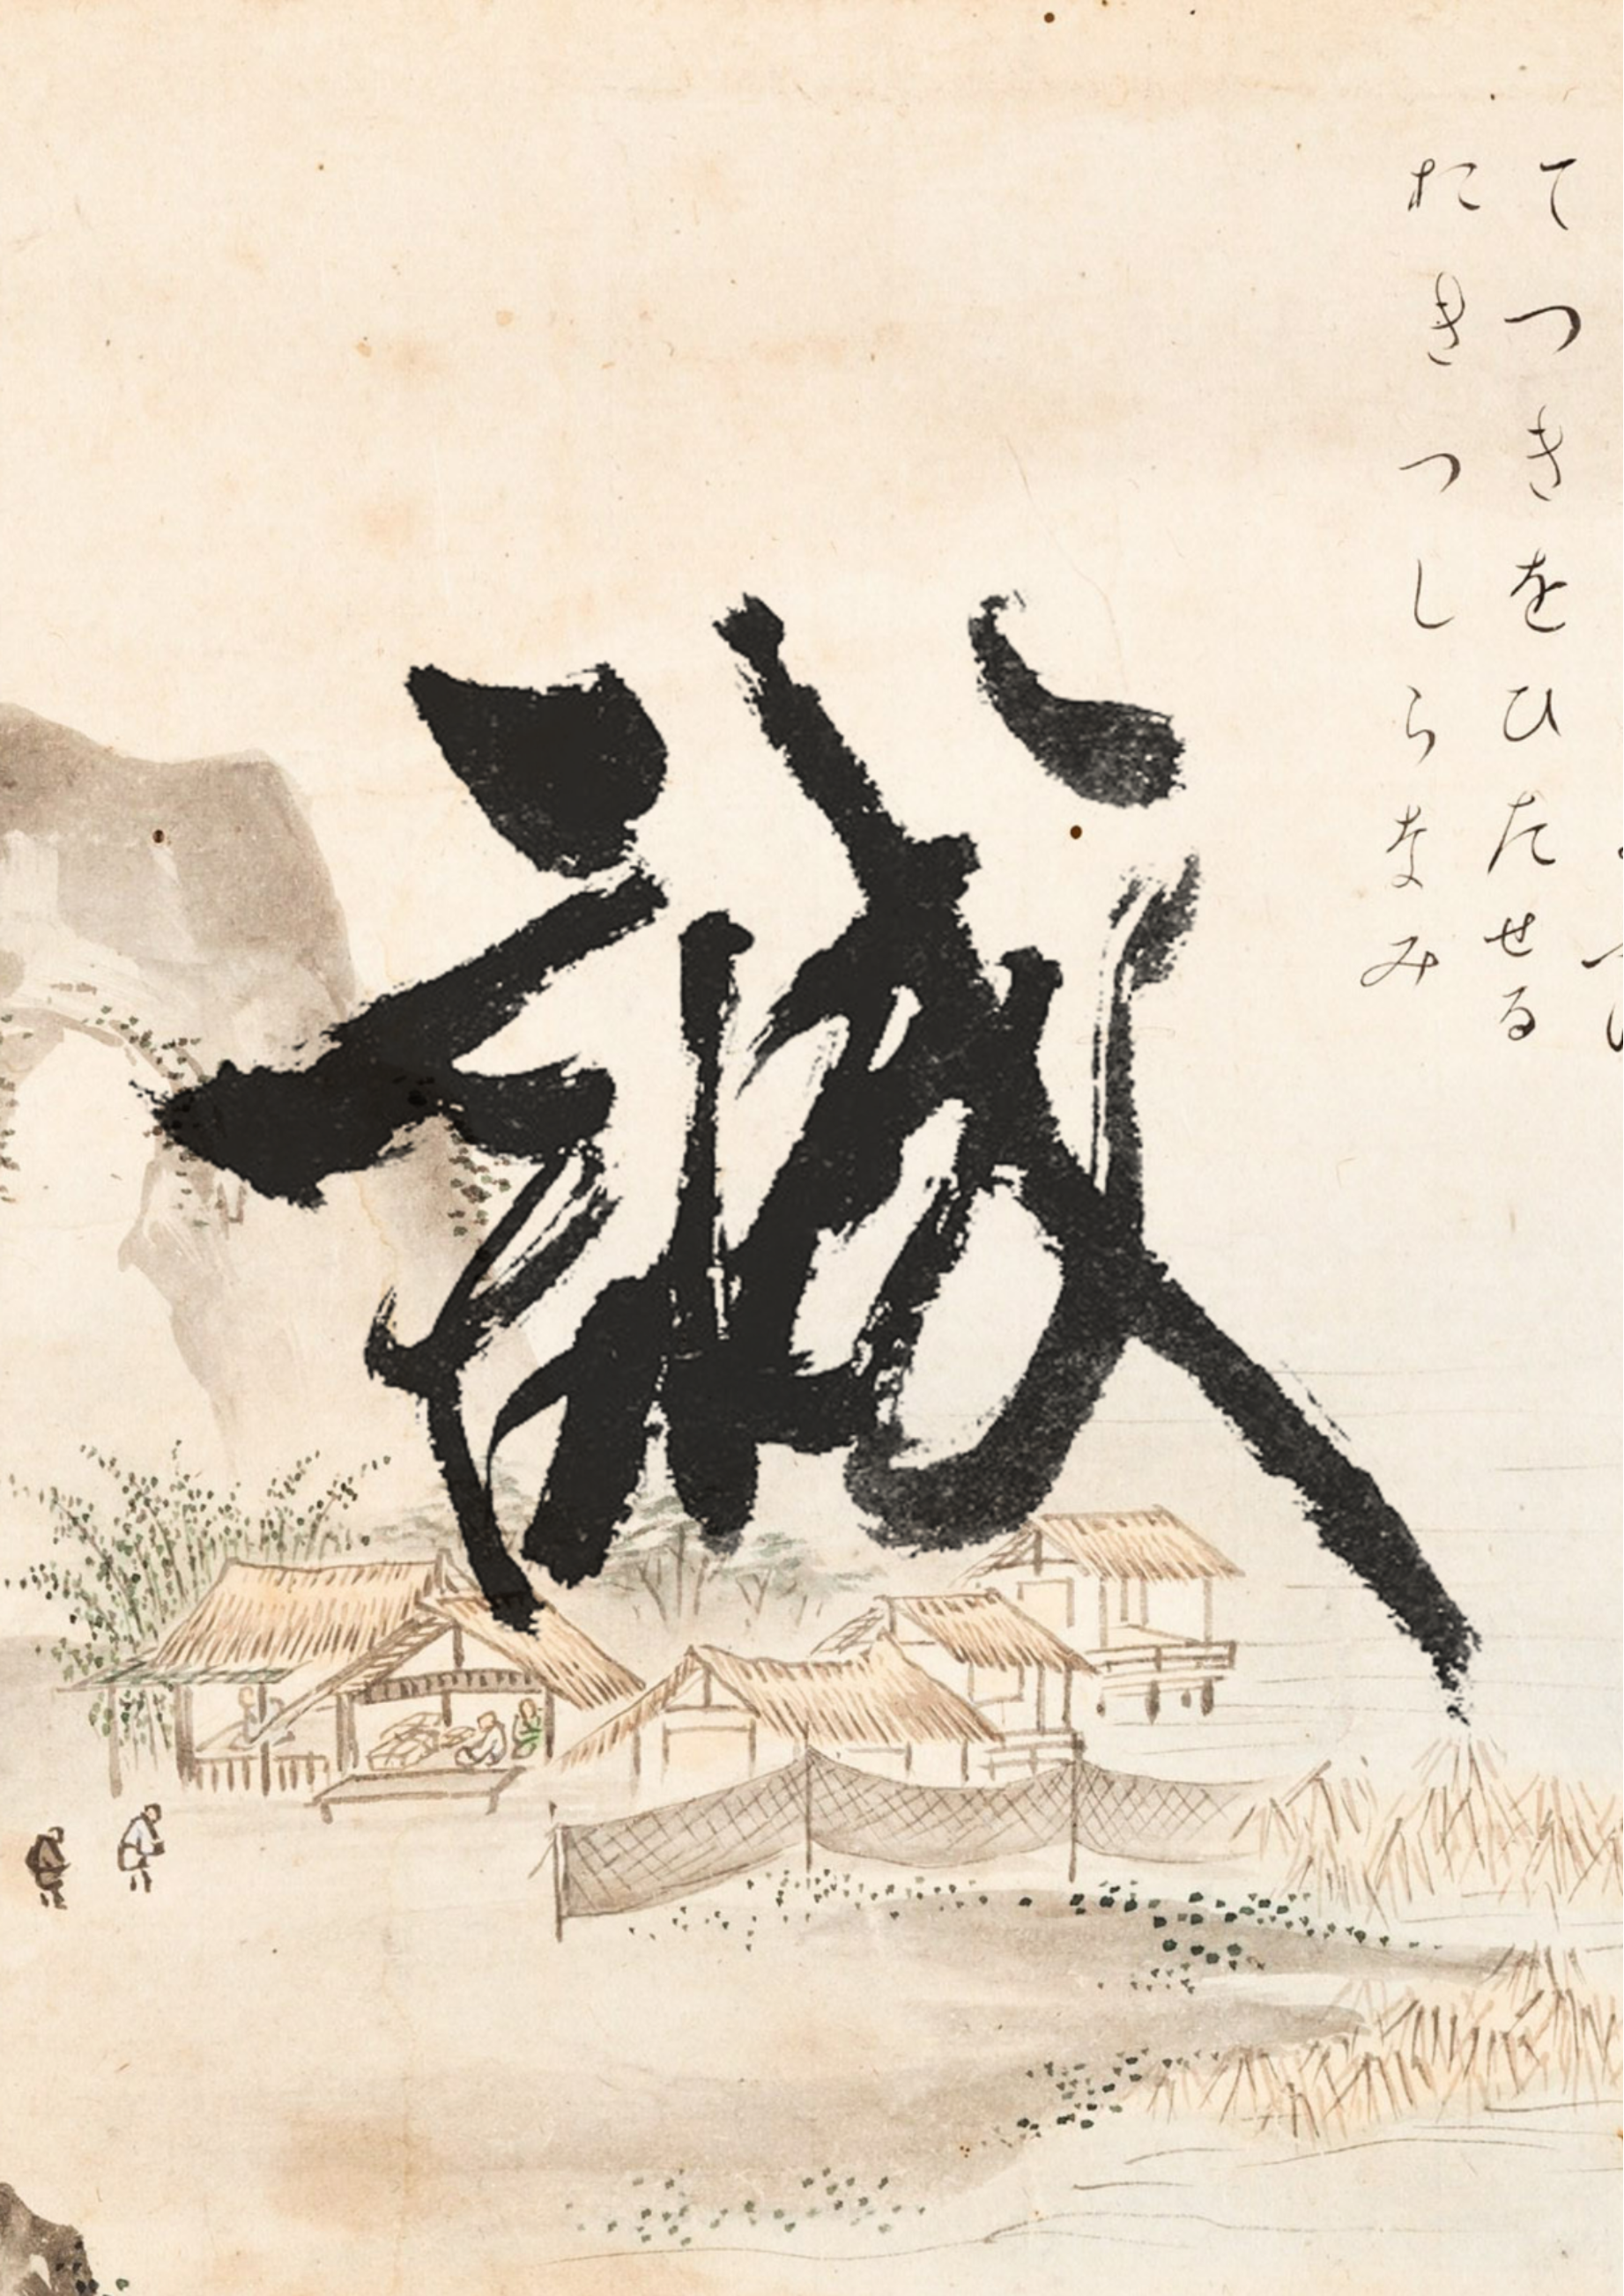 てつきをひたせる
たきつしらなみ
誠